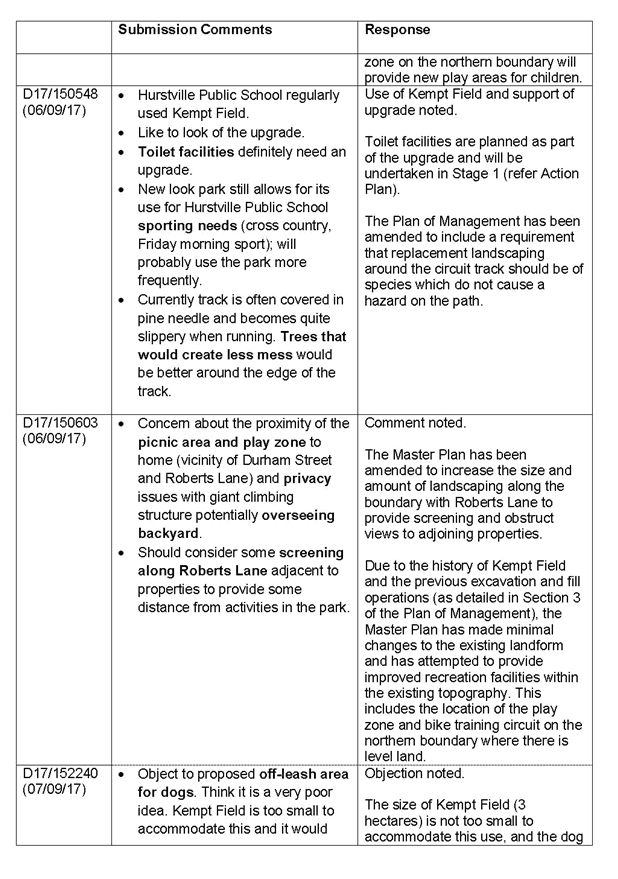 Submission Comments
Response
zone on the northern boundary will
provide new play areas for children.
D17/150548
(06/09/17)
• Hurstville Public School regularly
used Kempt Field.
• Like to look of the upgrade.
• Toilet facilities definitely need an
upgrade.
• New look park still allows for its
use for Hurstville Public School
sporting needs (cross country,
Friday morning sport); will
probably use the park more
frequently.
• Currently track is often covered in
pine needle and becomes quite
slippery when running. Trees that
would create less mess would
be better around the edge of the
track.
Use of Kempt Field and support of
upgrade noted.
Toilet facilities are planned as part
of the upgrade and will be
undertaken in Stage 1 (refer Action
Plan).
The Plan of Management has been
amended to include a requirement
that replacement landscaping
around the circuit track should be of
species which do not cause a
hazard on the path.
D17/150603
(06/09/17)
• Concern about the proximity of the
picnic area and play zone to
home (vicinity of Durham Street
and Roberts Lane) and privacy
issues with giant climbing
structure potentially overseeing
backyard.
• Should consider some screening
along Roberts Lane adjacent to
properties to provide some
distance from activities in the park.
Comment noted.
The Master Plan has been
amended to increase the size and
amount of landscaping along the
boundary with Roberts Lane to
provide screening and obstruct
views to adjoining properties.
Due to the history of Kempt Field
and the previous excavation and fill
operations (as detailed in Section 3
of the Plan of Management), the
Master Plan has made minimal
changes to the existing landform
and has attempted to provide
improved recreation facilities within
the existing topography. This
includes the location of the play
zone and bike training circuit on the
northern boundary where there is
level land.
D17/152240
(07/09/17)
• Object to proposed off-leash area
for dogs. Think it is a very poor
idea. Kempt Field is too small to
accommodate this and it would
Objection noted.
The size of Kempt Field (3
hectares) is not too small to
accommodate this use, and the dog